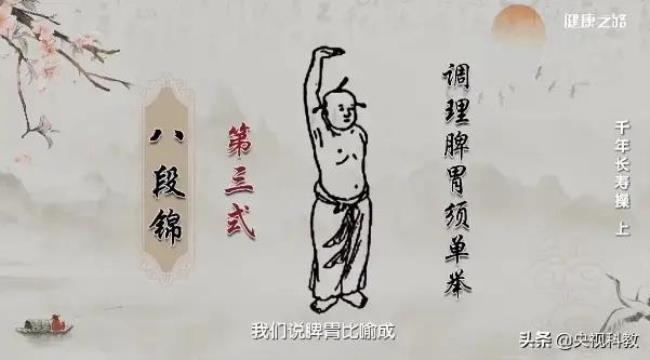 健康之路
调理脾胃须单举
千年长寿操 上
第三式
八段锦
我们说脾胃比喻成
头条 @央视科教